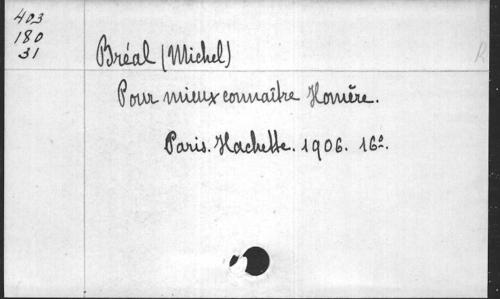 403
180
31
Bréal (Michel)
Pour mieux connaître Homère.
Paris. Hachette. 1906. 16º.